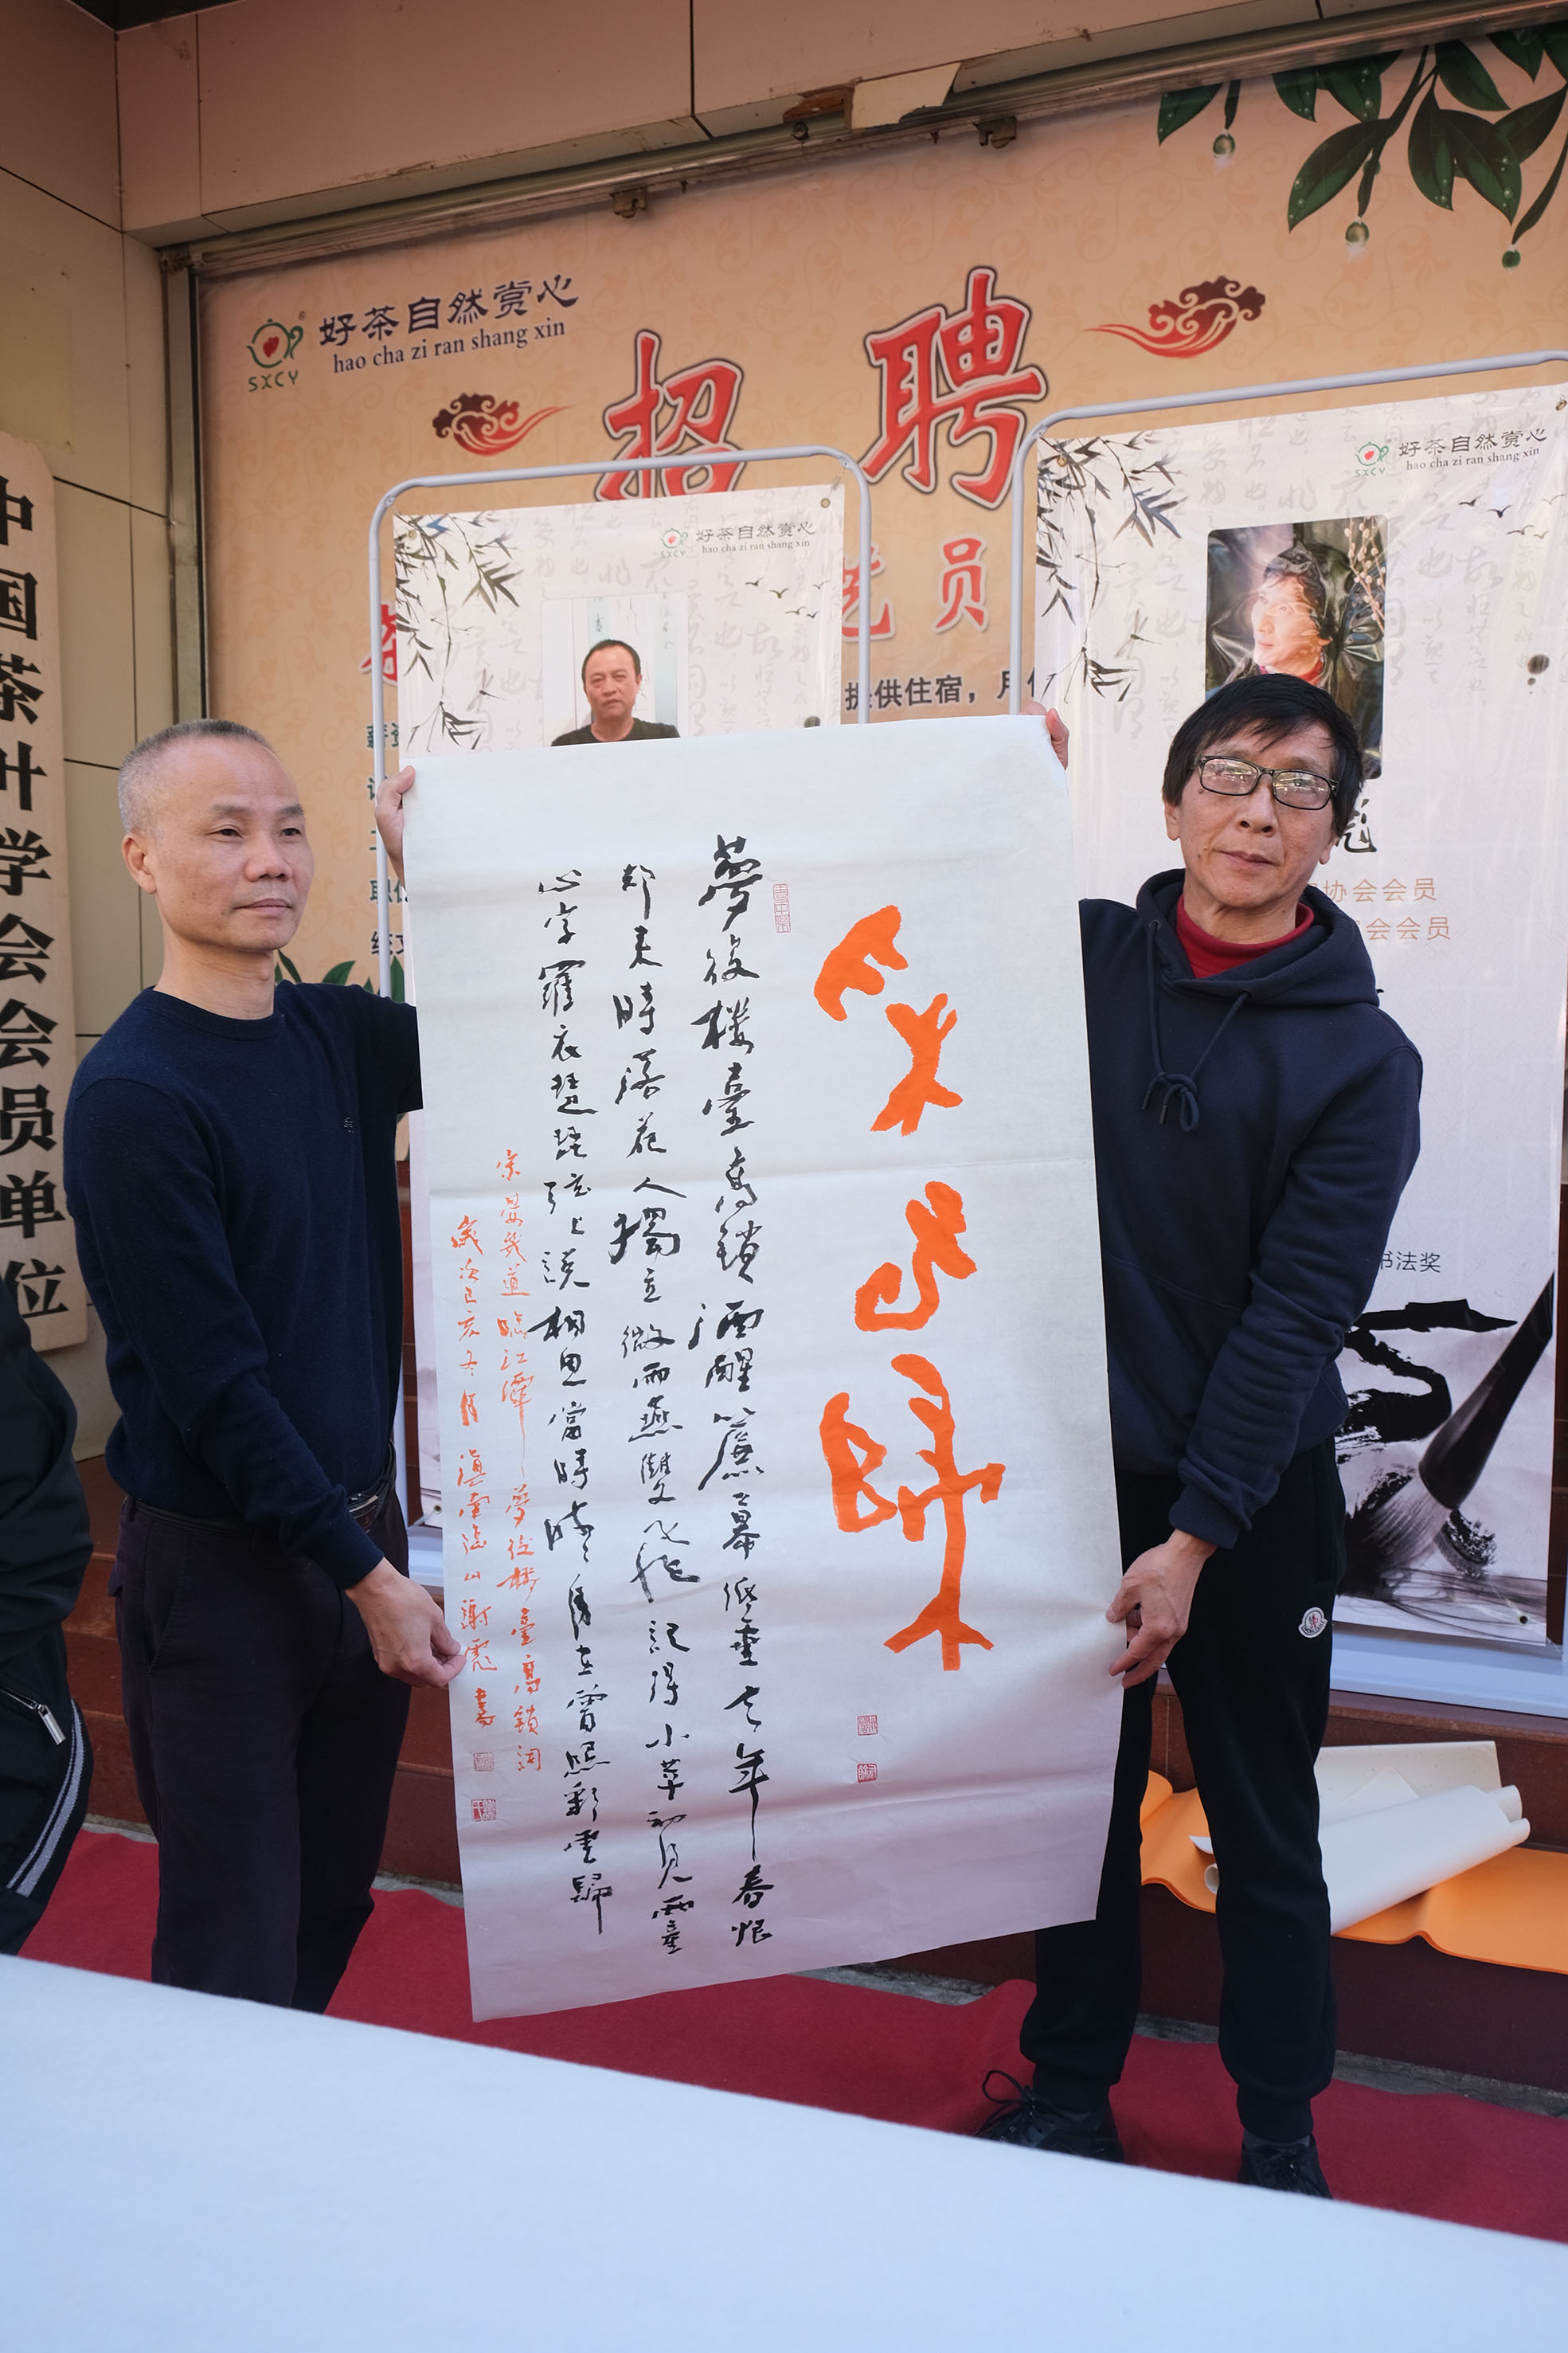 好茶自然赏心
hao cha zi ran shang xin
SXCY
招聘
员
提供住宿，月
好茶自然赏心
hao cha zi ran shang xin
SXCY
好茶自然赏心
hao cha zi ran shang xin
SXCY
彪
协会会员
会会员
书法奖
中国茶叶学会会员单位
夢後樓臺高鎖酒醒簾幕低垂去年春恨
却來時落花人獨立微雨燕雙飛記得小苹初見兩重
心字羅衣琵琶弦上說相思當時明月在曾照彩雲歸
宋晏幾道臨江仙夢後樓臺高鎖詞
歲次己亥冬月滇南臨山謝彪書